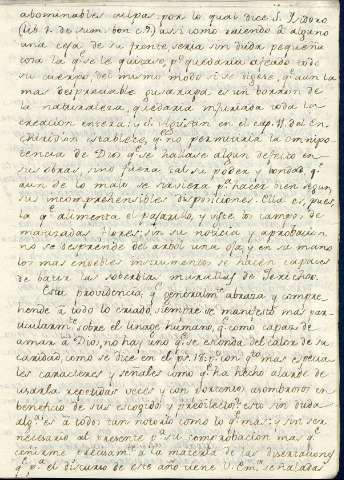 abominables culpas: por lo qual dice S. Isidoro
(lib. 1. de sum. bon. c. 8.) asi como raiendo à alguno
una ceja de su frente, seria sin duda pequeña
cosa la q.e se le quitase, p.o quedaria afeado todo
su cuerpo, del mismo modo si se dijese, q.e aun la
mas despreciable gusarapa es un borron de
la naturaleza, quedaria injuriada toda la
creacion entera: i S. Agustin en el cap. 11. del En-
chiridion establece, q.e no permitiria la omnipo-
tencia de Dios q.e se hallase algun defecto en
sus obras, sino fuera tal su poder y bondad, q.e
aun de lo malo se sirviera p.a hacer bien segun
sus incomprehensibles disposiciones. Ella es, pues,
la q.e alimenta el pajarillo, y viste los campos de
matizadas flores; sin su noticia y aprobacion
no se desprende del arbol una oja; y en su mano
los mas endebles instrumentos se hacen capaces
de batir las soberbias murallas de Jericho.
Esta providencia, q.e generalm.te abraza y compre-
hende à todo lo criado, siempre se manifestó mas par-
ticularm.te sobre el linage humano, q.e como capaz de
amar à Dios, no hay uno q.e se esconda del calor de su
caridad, como se dice en el ps. 18: p.o con q.to mas especia-
les caracteres y señales como q.e ha hecho alarde de
usarla repetidas veces y con portentos asombrosos en
beneficio de sus escogidos y predilectos, esto sin duda
alg.a es à todos tan notorio como lo q.e mas: y sin ser
necesario al presente p.a su comprobacion mas q.e
ceñirme precisam.te à la materia de las disertaciones
q.e p.a el discurso de este año tiene V. Em.a señaladas